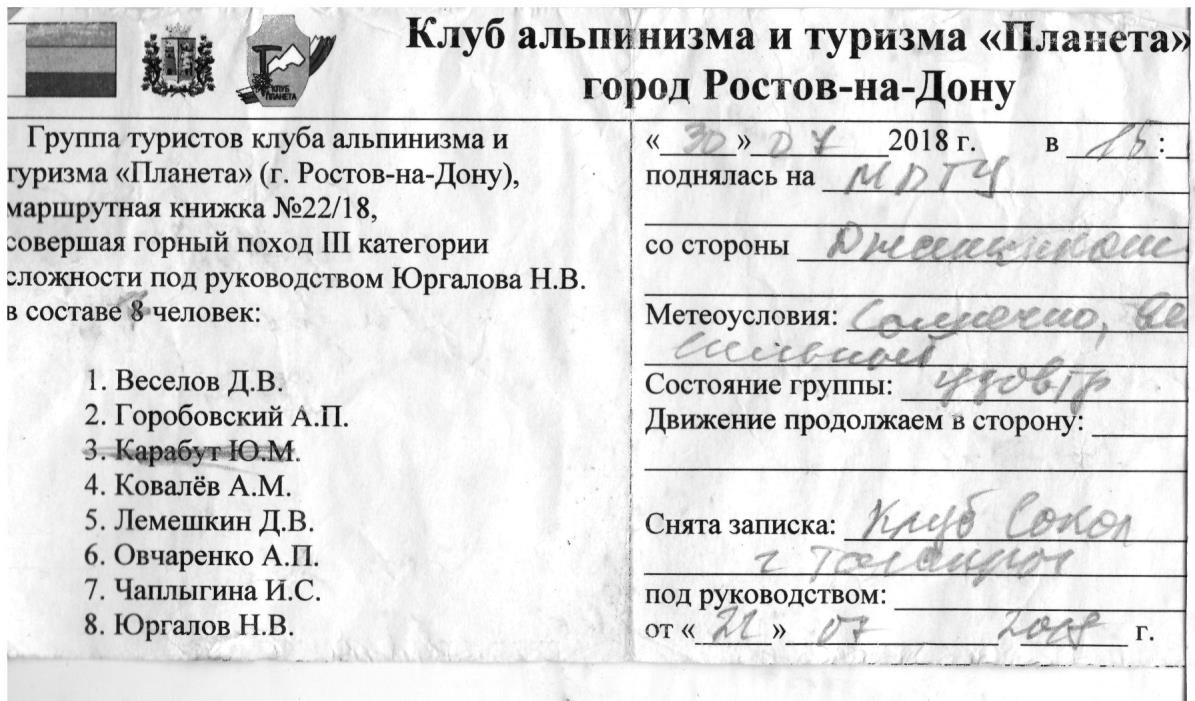 Клуб альпинизма и туризма «Планета»
город Ростов-на-Дону
КЛУБ
ПЛАНЕТА
Группа туристов клуба альпинизма и
туризма «Планета» (г. Ростов-на-Дону),
маршрутная книжка №22/18,
совершая горный поход III категории
сложности под руководством Юргалова Н.В.
в составе 8 человек:
1. Веселов Д.В.
2. Горобовский А.П.
3. Карабут Ю.М.
4. Ковалёв А.М.
5. Лемешкин Д.В.
6. Овчаренко А.П.
7. Чаплыгина И.С.
8. Юргалов Н.В.
«30» 07 2018 г. в 15:
поднялась на МВТУ
со стороны
Метеоусловия: Солнечно,
сильный
Состояние группы: удовтр
Движение продолжаем в сторону:
Снята записка: Клуб Сокол
г Таганрог
под руководством:
от «21» 07 г.